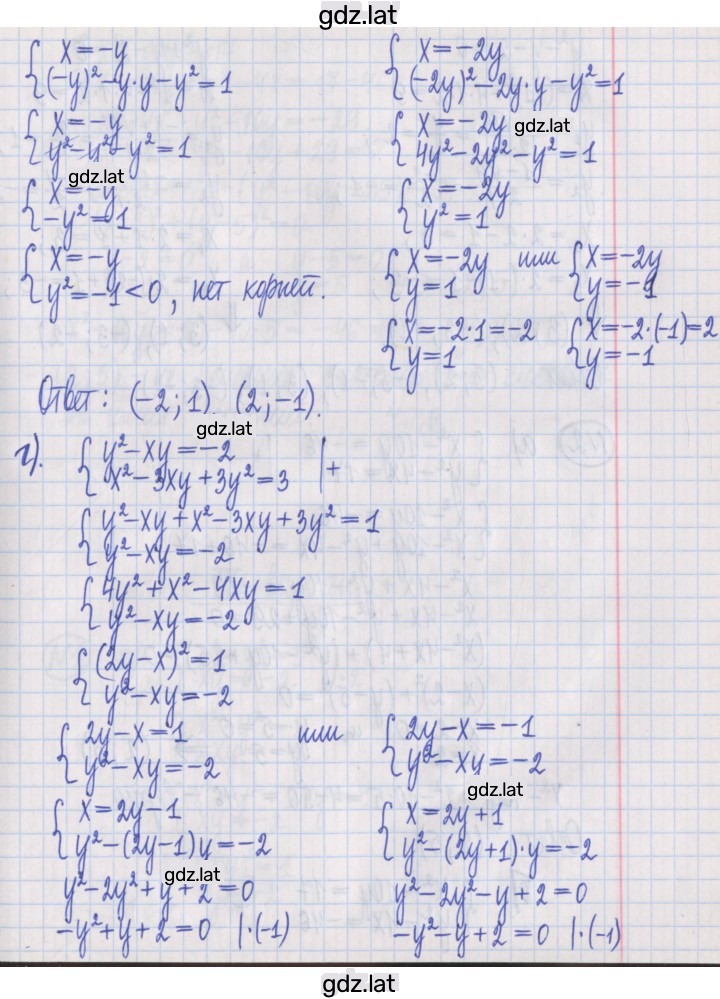 gdz.lat
{ x=-y
(-y)²-y·y-y²=1
{ x=-y
y²-y²-y²=1
gdz.lat
{ x=-y
-y²=1
{ x=-y
y²=-1<0, нет корней.
{ x=-2y
(-2y)²-2y·y-y²=1
{ x=-2y
gdz.lat
4y²-2y²-y²=1
{ x=-2y
y²=1
{ x=-2y или { x=-2y
y=1 y=-1
{ x=-2·1=-2 { x=-2·(-1)=2
y=1 y=-1
Ответ: (-2;1) (2;-1).
gdz.lat
г). { y²-xy=-2
x²-3xy+3y²=3 |+
{ y²-xy+x²-3xy+3y²=1
y²-xy=-2
{ 4y²+x²-4xy=1
y²-xy=-2
{ (2y-x)²=1
y²-xy=-2
{ 2y-x=1 или { 2y-x=-1
y²-xy=-2 y²-xy=-2
gdz.lat
{ x=2y-1 { x=2y+1
y²-(2y-1)y=-2 y²-(2y+1)·y=-2
gdz.lat
y²-2y²+y+2=0 y²-2y²-y+2=0
-y²+y+2=0 |·(-1) -y²-y+2=0 |·(-1)
gdz.lat